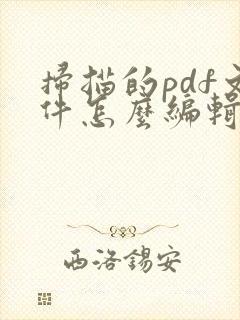 掃描的pdf文
件怎麼編輯
西洛錫安